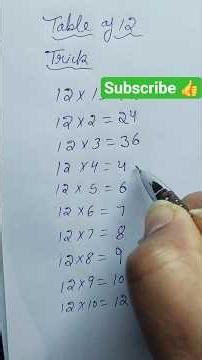 Table of 12
Trick
12 × 1
Subscribe 👍
12 × 2 = 24
12 × 3 = 36
12 × 4 = 4
12 × 5 = 6
12 × 6 = 7
12 × 7 = 8
12 × 8 = 9
12 × 9 = 10
12 × 10 = 12